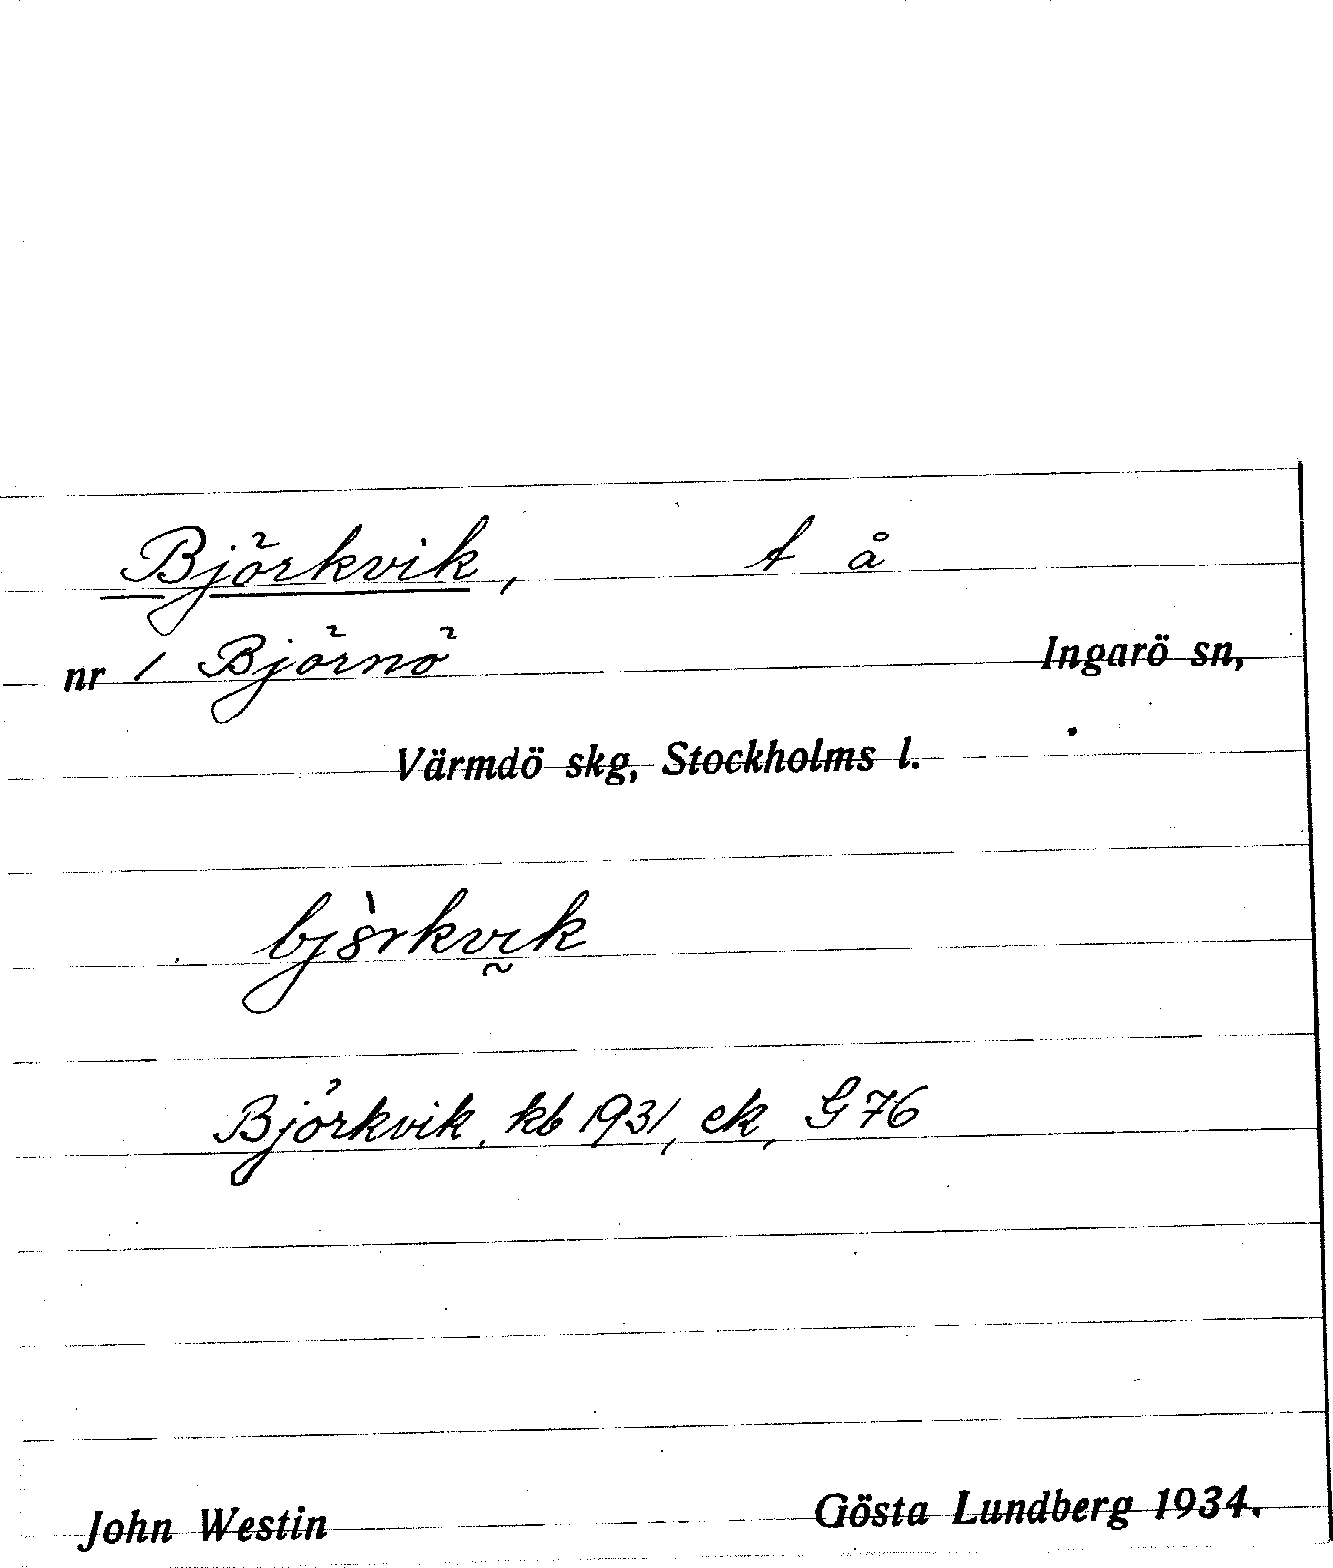 Björkvik, t å
nr 1 Björnö Ingarö sn,
Värmdö skg, Stockholms l.
Björkvik, kb 1931, ek, G 76
John Westin Gösta Lundberg 1934.